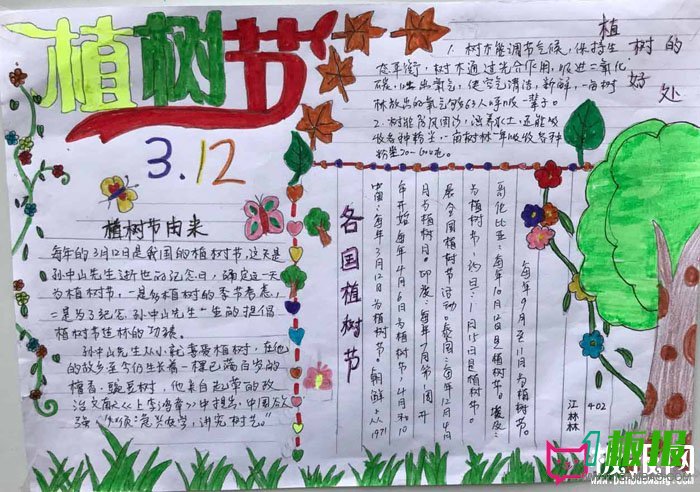 植树节
3.12
植树节由来
每年的3月12日是我国的植树节,这天是
孙中山先生逝世的纪念日,确定这一天
为植树节,一是为植树的季节考虑,
二是为了纪念孙中山先生一生的提倡
植树节造林的功绩。
孙中山先生从小就喜爱植树,在他
的故乡至今仍生长着一棵已满百岁的
檀香、豌豆树,他亲自起草的政
治文献《上李鸿章》中提出,中国欲
强
植树的好处
1.树木能调节气候,保持生
态平衡,树木通过光合作用,吸进二氧化
碳,吐出氧气,使空气清洁,新鲜,一亩树
林放出的氧气够65人呼吸一辈子。
2.树能防风固沙,涵养水土,还能吸
收各种粉尘,一亩树林一年吸收各种
粉尘20-60吨。
各国植树节
中国:每年3月12日为植树节。朝鲜:从1971
年开始每年4月6日为植树节,4月和10
月为植树月。印度:每年7月第一周开
展全国植树节活动。泰国:每年12月4日
为植树节,约旦:1月15日是植树节。
哥伦比亚:每年10月12日是植树节。
每年9月至11月为植树节。
402
江林林
板报网